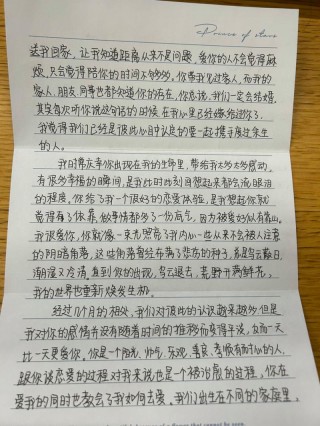 Prince of stars
送我回家，让我知道距离从来不是问题，爱你的人不会觉得麻
烦，只会觉得陪你的时间不够多。你带我见过家人，而我的
家人，朋友，同事也都知道你的存在，你总说，我们一定会结婚，
其实每次听你说这句话的时候，在我心里已经嫁给过你了。
我觉得我们已经是彼此心目中认定的要一起携手度过余生
的人。
我时常庆幸你出现在我的生命里，带给我太多太多感动，
有很多幸福的瞬间，是我此时此刻再想起来都会流眼泪
的程度，你给了我一个很好的恋爱体验，是我想起你就
觉得有了依靠，做事情都多了一份底气，因为被爱好似有靠山。
我很爱你，你就像一束光照亮了我内心一些从来不会被人注意
的阴暗角落，这些角落曾经布满了悲伤的种子，总是乌云蔽日
潮湿又苍凉，直到你的出现，乌云退去，荒野开满鲜花，
我的世界也重新焕发生机。
经过11个月的相处，我们对彼此的认识越来越多，但是
我对你的感情并没有随着时间的推移而变得平淡，反而一天
比一天更爱你。你是一个阳光，帅气，乐观，善良，孝顺有耐心的人，
跟你谈恋爱的过程对我来说也是一个被治愈的过程，你在
爱我的同时也教会了我如何去爱。我们出生在不同的家庭里，